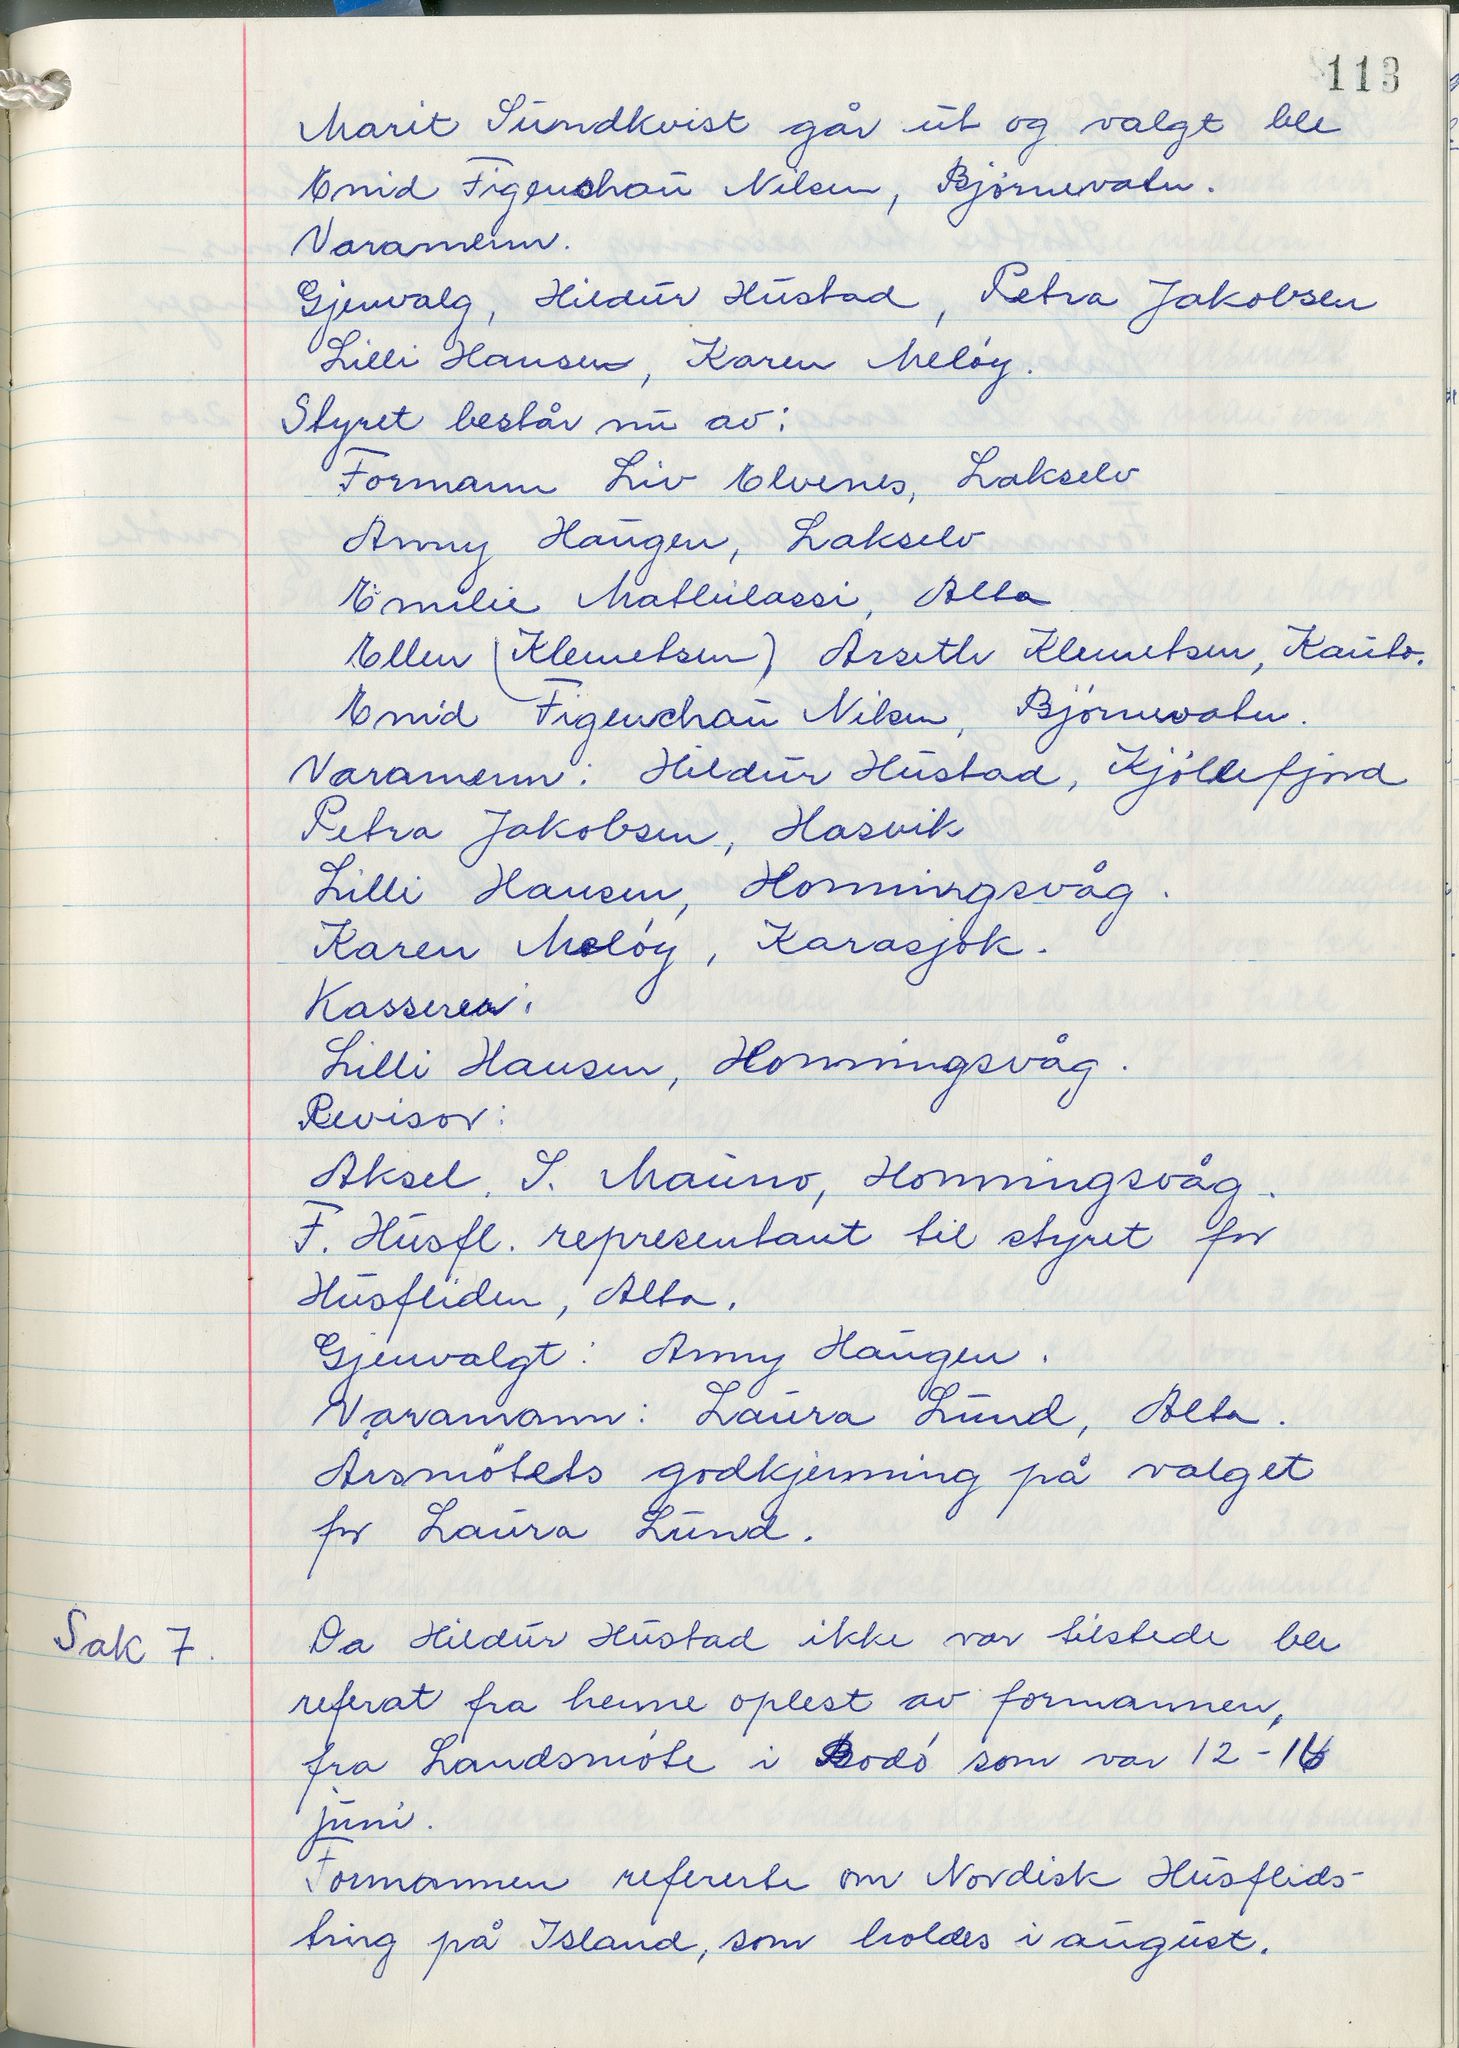 113
Marit Sundkvist går ut og valgt ble
Enid Figenchau Nilsen, Bjørnevatn.
Varamenn.
Gjenvalg, Hildur Hustad, Petra Jakobsen
Lilli Hansen, Karen Meløy.
Styret består nu av:
Formann Liv Elvenes, Lakselv
Anny Haugen, Lakselv
Emilie Mathilassi, Alta
Ellen (Klemetsen) Arseth Klemetsen, Kauto.
Enid Figenchau Nilsen, Björnevatn.
Varamenn: Hildur Hustad, Kjøllefjord
Petra Jakobsen, Hasvik
Lilli Hansen, Honningsvåg.
Karen Meløy, Karasjok.
Kasserer:
Lilli Hansen, Honningsvåg.
Revisor:
Aksel. S. Mauno, Honningsvåg.
F. Husfl. representant til styret for
Husfliden, Alta.
Gjenvalgt: Anny Haugen.
Varamann: Laura Lund, Alta.
Årsmötets godkjenning på valget
for Laura Lund.
Sak 7. Da Hildur Hustad ikke var tilstede ble
referat fra henne oplest av formannen,
fra Landsmøte i Bodø som var 12-16
juni.
Formannen refererte om Nordisk Husflids-
ting på Island, som holdes i august.